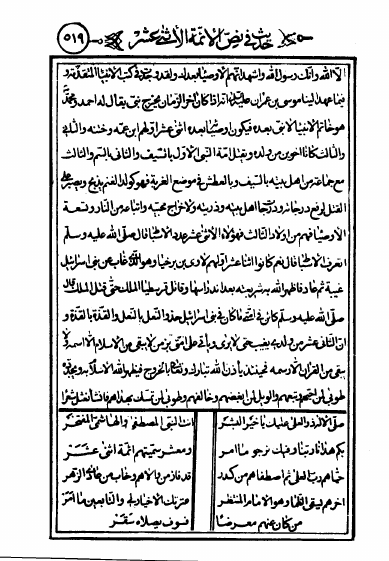 ٥١٩ حديث في نص الأئمة الاثنى عشر
الا الله وانك رسول الله واشهد انهم الاوصياء بعدك ولقد وجدت في كتب الانبياء المتقدمة و
فيما عهد الينا موسى بن عمران عليه انه اذا كان اخر الزمان يخرج نبي يقال له احمد ومحمد
هو خاتم الانبياء لا نبي بعده فيكون اوصيائه بعده اثنى عشر اولهم ابن عمه وختنه والثاني
والثالث كانا اخوين من ولده وتقتل امة النبي الاول بالسيف والثاني بالسم والثالث
مع جماعة من اهل بيته بالسيف وبالعطش في موضع الغربة فهو كولد الغنم يذبح ويصبر على
القتل لرفع درجاته ودرجات اهل بيته وذريته ولاخراج محبيه واتباعه من النار وتسعة
الاوصياء منهم من اولاد الثالث فهؤلاء الاثنى عشر عدد الاسباط قال صلى الله عليه وسلم
اتعرف الاسباط قال نعم كانوا اثنا عشر اولهم لاوى بن برخيا وهو الذي غاب عن بني اسرائيل
غيبة ثم عاد فاظهر الله به شريعته بعد اندراسها وقاتل قرسطيا الملك حتى قتل الملك قال
صلى الله عليه وسلم كائن في امتي ما كان في بني اسرائيل حذو النعل بالنعل والقذة بالقذة و
ان الثاني عشر من ولدي يغيب حتى لا يرى وياتي على امتي بزمن لا يبقى من الاسلام الا اسمه ولا
يبقى من القران الا رسمه فحينئذ ياذن الله تبارك وتعالى له بالخروج فيظهر الله الاسلام به ويجدده
طوبى لمن احبهم وتبعهم والويل لمن ابغضهم وخالفهم وطوبى لمن تمسك بهداهم فانشا نعثل شعرا
صلى الاله ذو العلى عليك يا خير البشر انت النبي المصطفى والهاشمي المفتخر
بكم هدانا ربنا وفيك نرجو ما امر ومعشر سميتهم ائمة اثنى عشر
حباهم رب العلى ثم اصطفاهم من كدر قد فاز من والاهم وخاب من عادى الزهر
اخرهم يسقي الظماء وهو الامام المنتظر عترتك الاخيار لي والتابعين ما امر
من كان عنهم معرضا فسوف يصلاه سقر